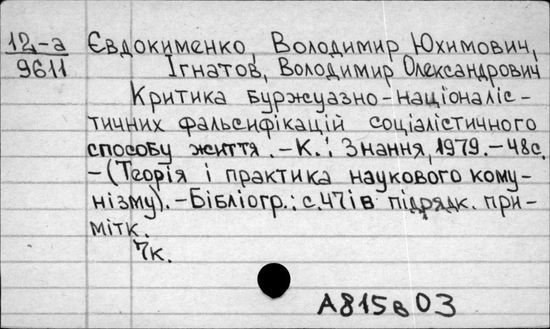 12-а Євдокименко, Володимир Юхимович,
9611 Ігнатов, Володимир Олександрович
Критика буржуазно-націоналіс-
тичних фальсифікацій соціалістичного
способу життя. - К.: Знання, 1979. - 48с.
- (Теорія і практика наукового кому-
нізму). - Бібліогр.: с.47 і в підрядк. при-
мітк.
7к.
А815в03